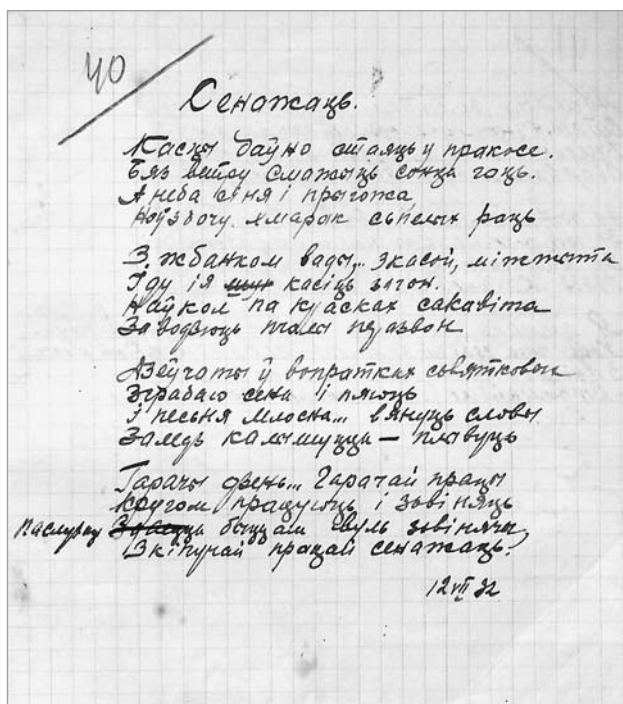 40
Сенажаць.
Касцы даўно стаяць у пракосе.
Бяз ветру смажыць сонца гаць.
А неба сіня і прыгожа
Наўзбочу хмарак сьпелых раць
З жбанком вады... з касой, між жыта
Іду і я касіць загон.
Наўкол па красках сакавіта
Заводзюць пчолы перазвон
Дзеўчаты ў вопратках сьвятковых
Зграбаю сена і пяюць
І песьня млосна... вянуць словы
Заледь калышуцца — плывуць
Гарачы дзень... Гарачай працы
Кругом працуюць і звіняць
Паслухаў Здаецца быццам вуль звінячы
З кіпучай працай сенажаць.
12 VII 32